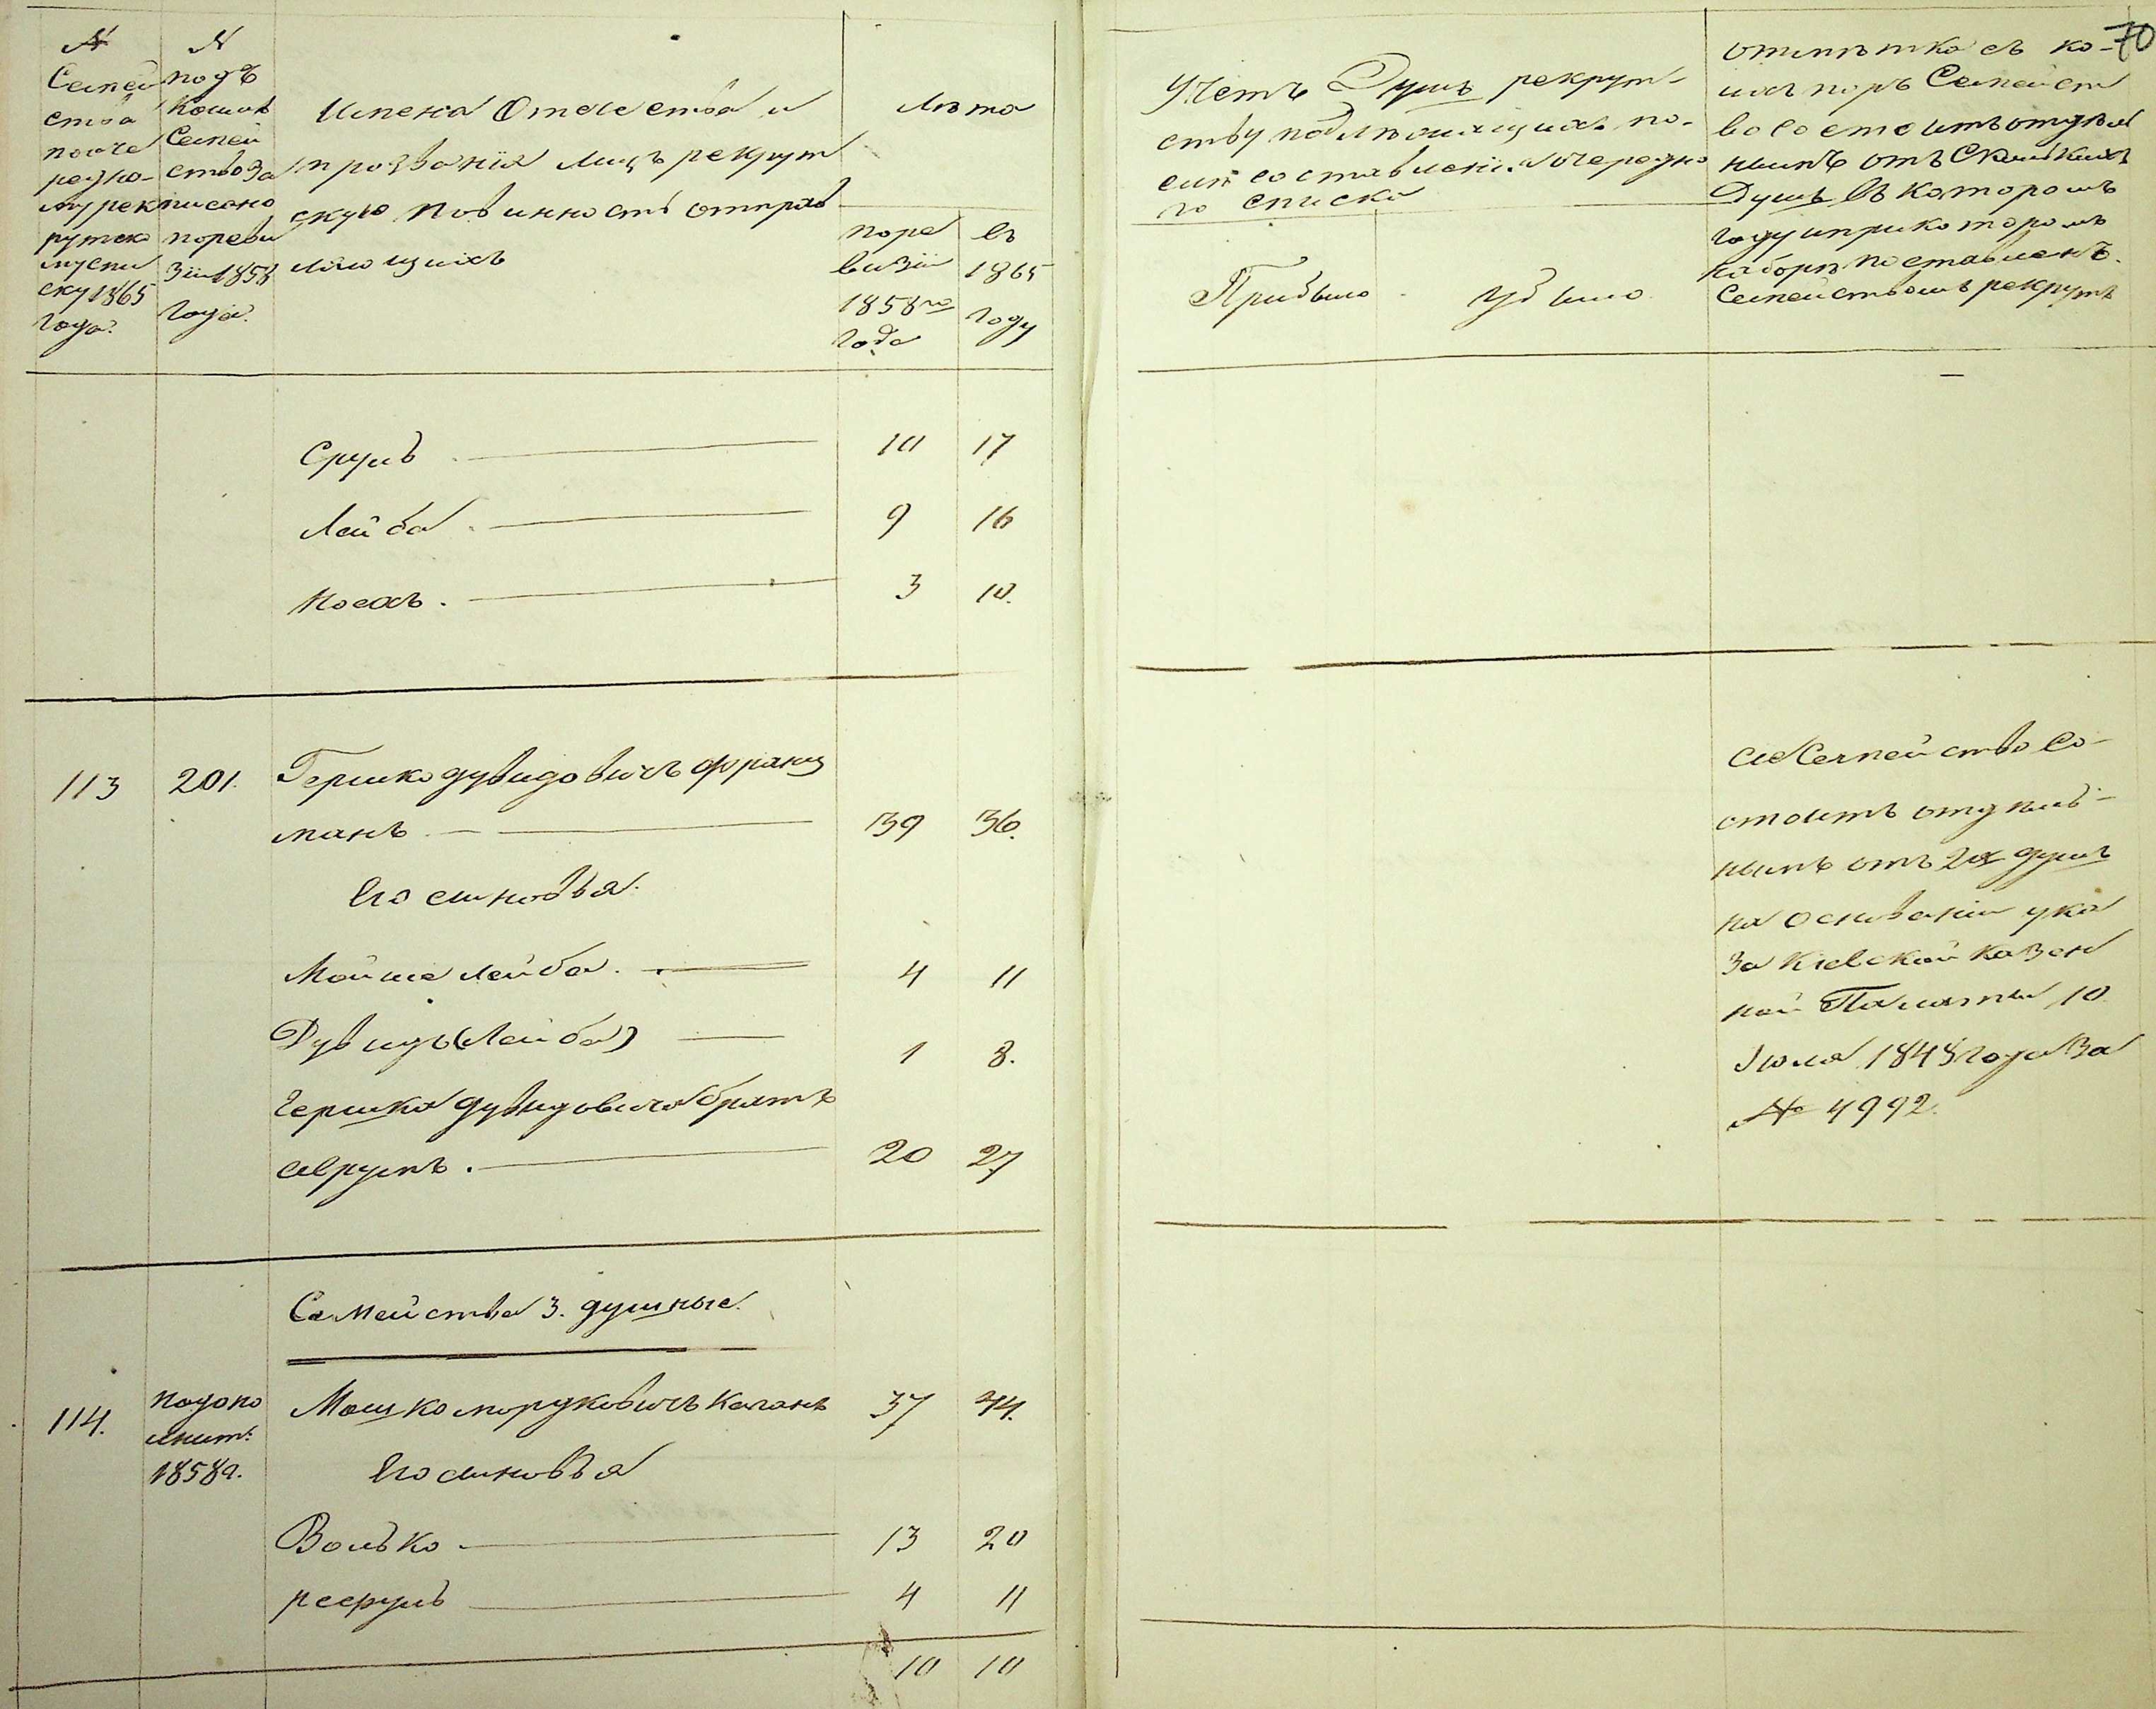 №
Семей
ства
пооче
редно-
му рек
рутско
му спи
ску 1865
года.
№
подъ
коимъ
Семей
ство за
писано
по реви
зіи 1858
года.
Имена Отечества и
прозванія лицъ рекрут
скую повинность отправ
ляющихъ
Лѣта
по ре
визіи
1858го
года
въ
1865
году
Учетъ Душъ рекрут-
ству подлѣжащихъ по-
слѣ составленія очередна
го списка
Прибыло
убыло
70
отмѣтка съ ко-
ихъ поръ Семейст
во состоитъ отдѣл
нымъ отъ сколькихъ
Душъ въ которомъ
году и при которомъ
наборѣ поставленъ
Семействомъ рекрутъ
Сруль 10 17
Лейба 9 16
Посахъ 3 10.
113 201. Гершко дувидовичъ Франц
манъ 39 36.
Его сыновья.
Мойше Лейба. 4 11
Дувидъ (Лейба) 1 8.
Гершка дувидовича братъ
Аврумъ. 20 27
сіе Семейство со-
стоитъ отдѣль-
нымъ отъ 2х душъ
на основаніи ука
за Кіевской Казен
ной Палаты 10
Іюля 1848 года за
№ 4992.
Семейства 3. душные.
114. по допо
лнит.
1858 г. Мошко мордковичъ Каганъ 37 44.
Его сыновья
Волько 13 20
рефулъ 4 11
10 10